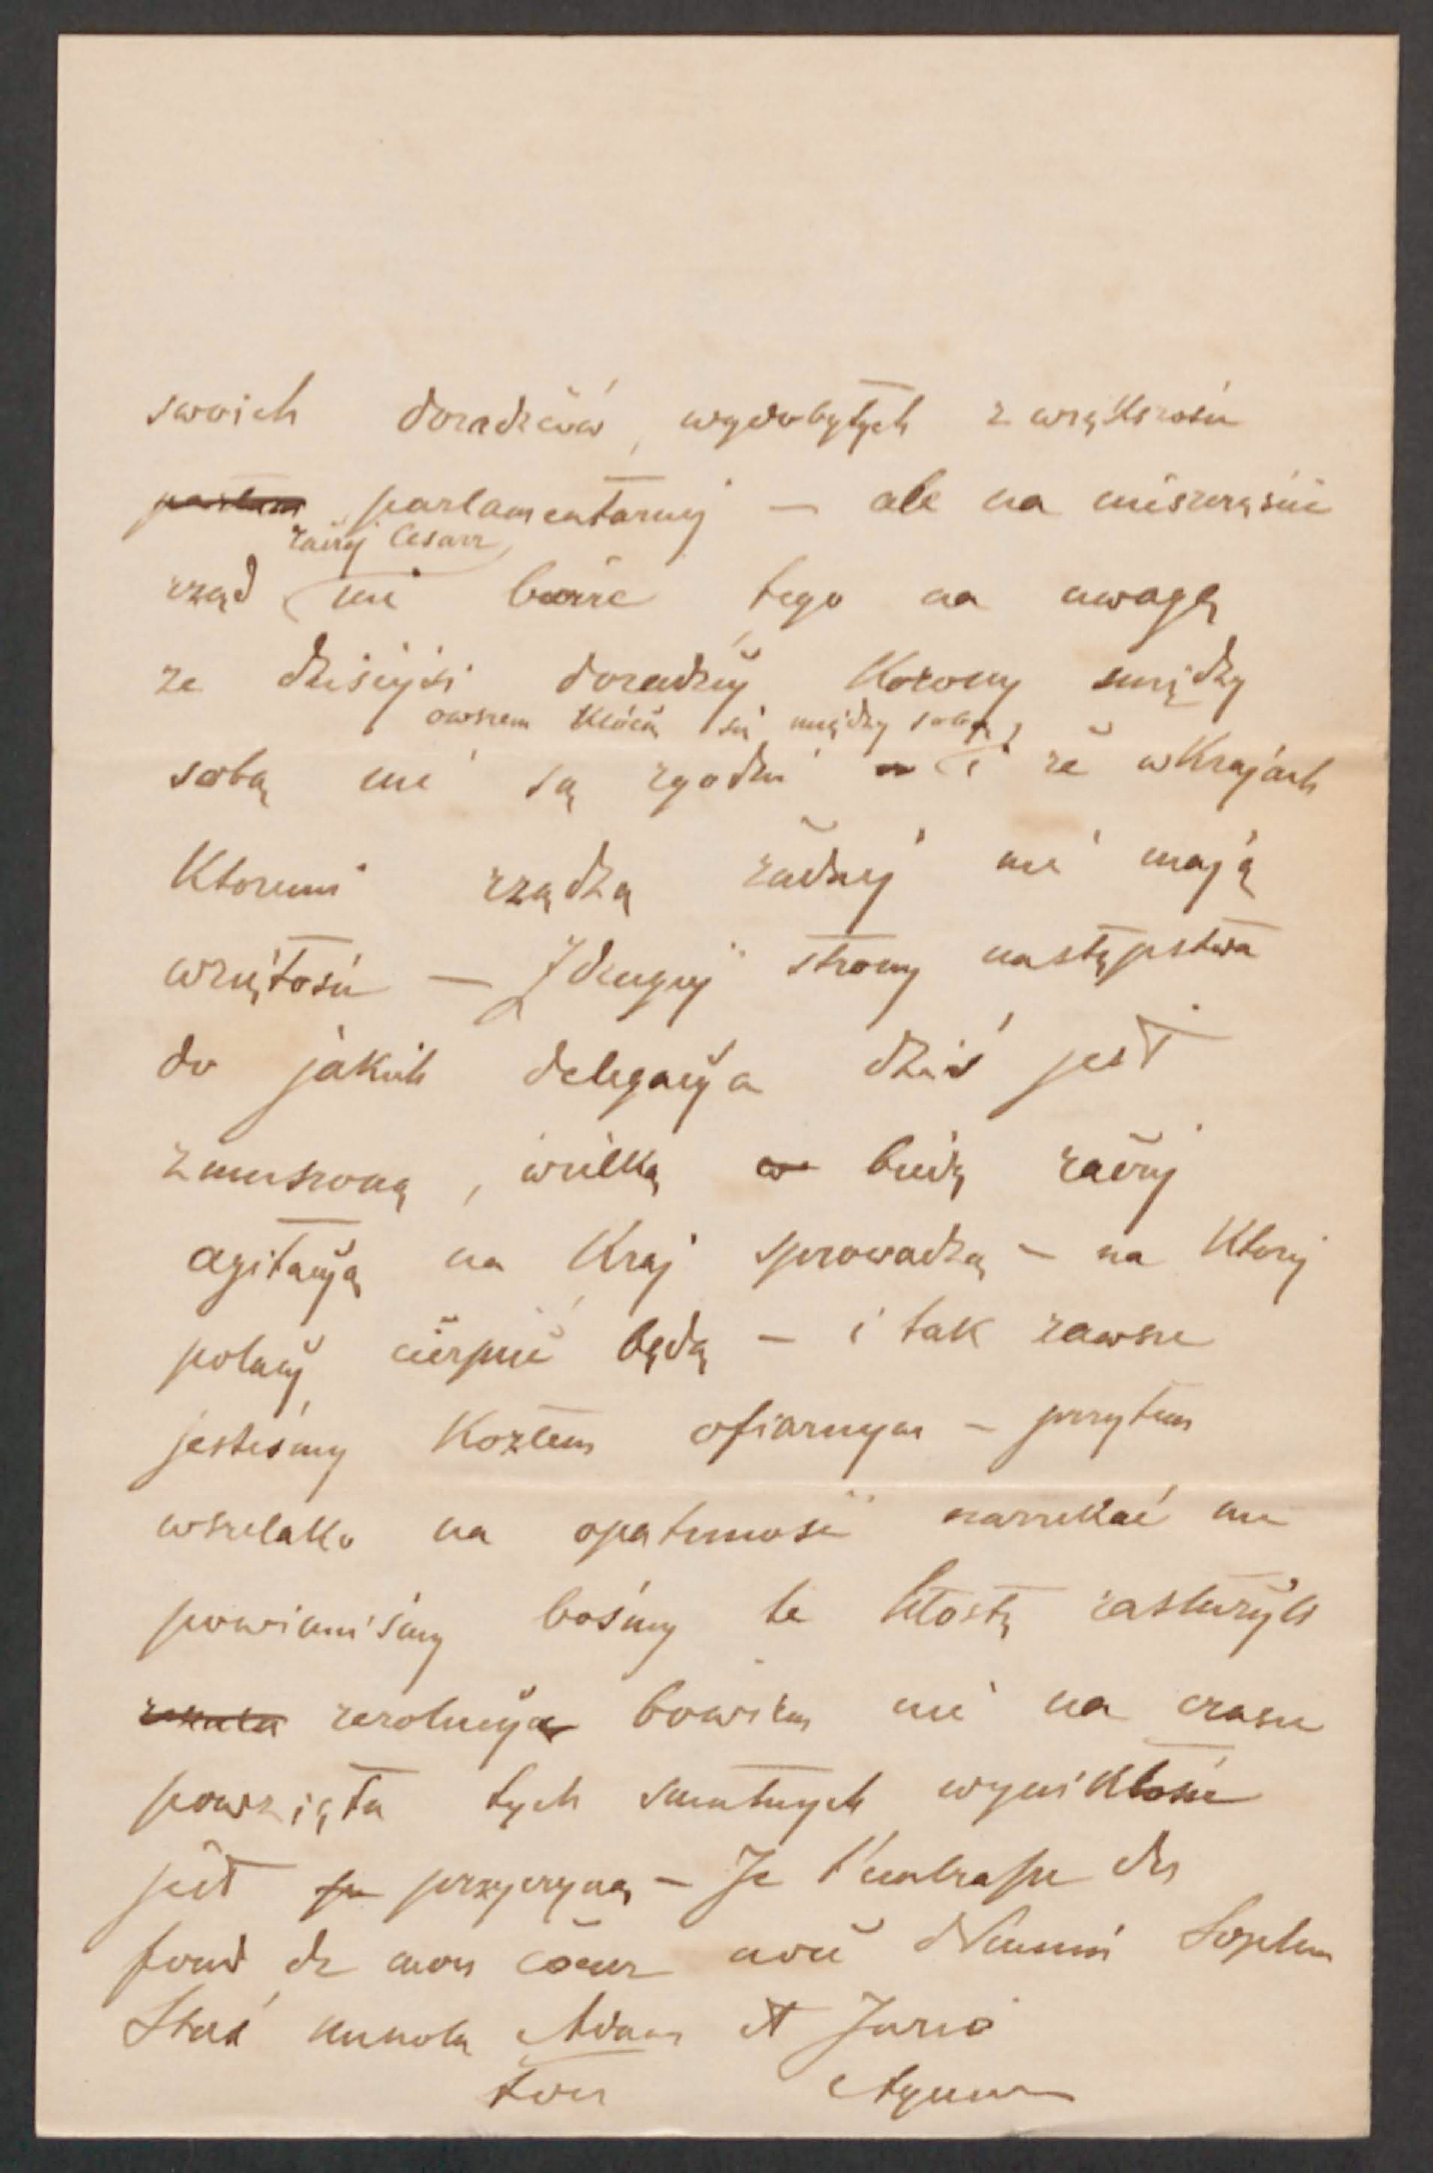 swoich doradców, wydobytych z większości
parlam parlamentarnej — ale na nieszczęście
raczej Cesarz
rząd nie bierze tego na uwagę
ze dzisiejsi doradzcy Korony między
owszem kłócą się między sobą
sobą nie są zgodni i że w Krajach
Ktoremi rządzą żadnej nie mają
wziętości — Z drugiej strony następstwa
do jakich delegacya dziś jest
zmuszoną, wielką w biedę raczej
agitacyą na Kraj sprowadzą — na Ktorej
polacy cierpieć będą — i tak zawsze
jesteśmy Kozłem ofiarnym — przytem
wszelako na opatrzność narzekać nie
powinniśmy bośmy te chłostę zasłużyli
rezolucya bowiem nie na czasie
powzięta tych smutnych wynikłości
jest przyczyną — Je t'embrasse du
fond de mon cœur Sophie
Staś Adam et Józio